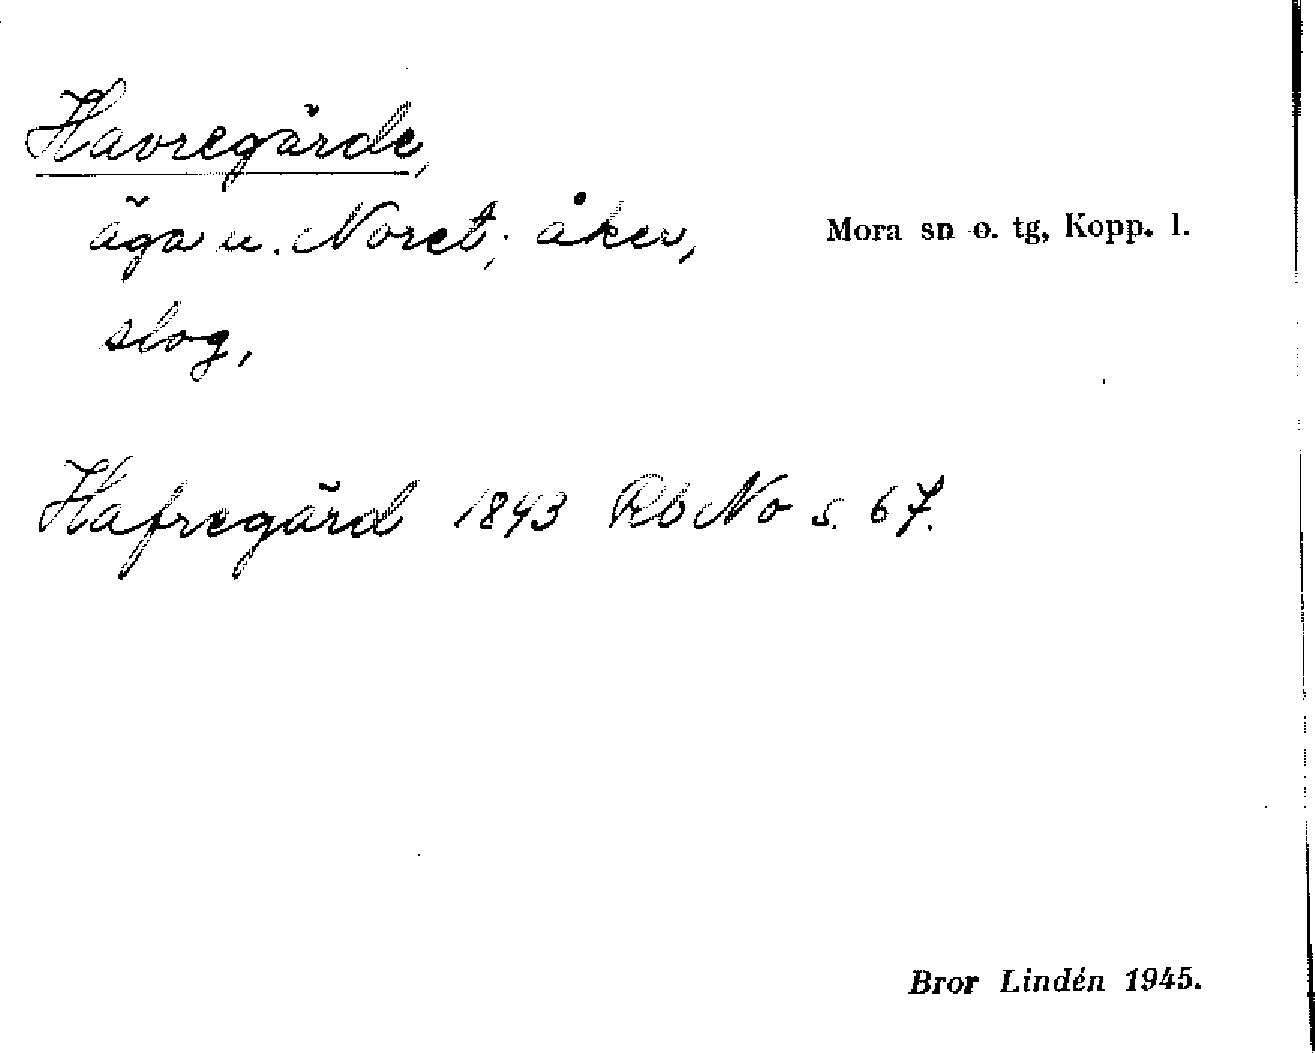 Havregärde,
äga u. Noret; åker,
Mora sn o. tg, Kopp. l.
slog,
Hafregärd 1843 Rb No s. 67.
Bror Lindén 1945.